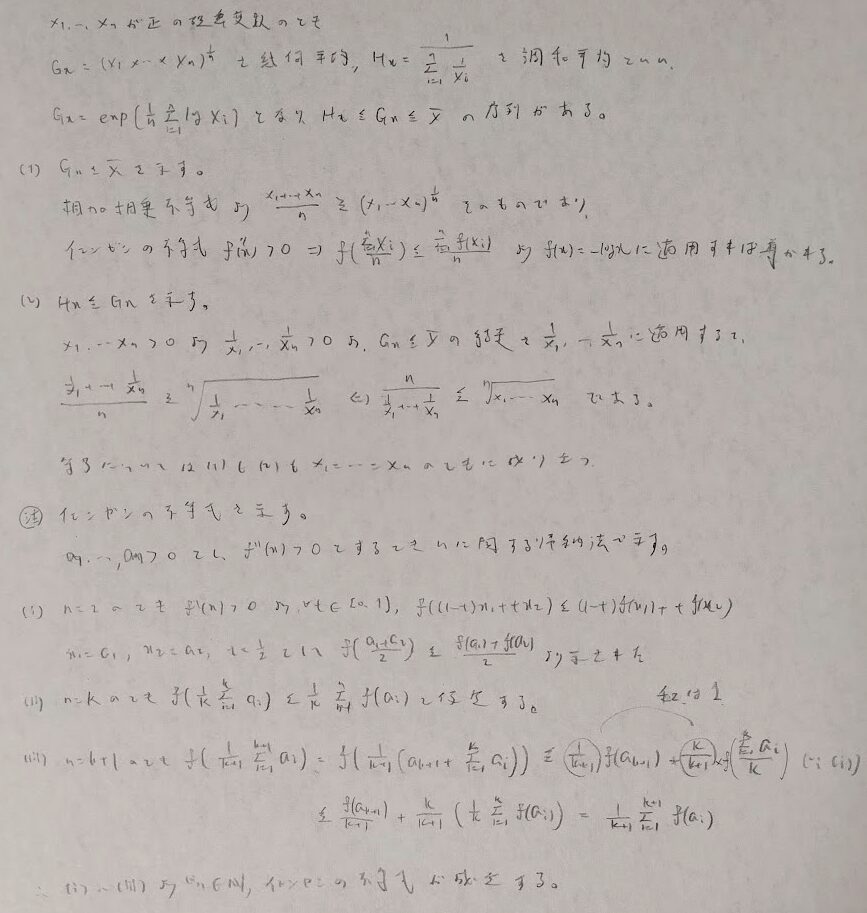 x₁, …, xₙ が正の確率変数のとき
Gₙ = (x₁ × … × xₙ)^{1/n} を幾何平均, Hₙ = 1/(Σ_{i=1}^{n} 1/xᵢ) を調和平均といい、
Gₙ = exp(1/n Σ_{i=1}^{n} log xᵢ) となり Hₙ ≤ Gₙ ≤ x̄ の序列がある。
(1) Gₙ ≤ x̄ を示す。
相加相乗不等式より (x₁+…+xₙ)/n ≥ (x₁…xₙ)^{1/n} そのものであり、
イェンゼンの不等式 f''(x) > 0 ⇒ f(Σ_{i=1}^{n} xᵢ/n) ≤ Σ_{i=1}^{n} f(xᵢ)/n より f(x) = -log x に適用すれば導かれる。
(2) Hₙ ≤ Gₙ を示す。
x₁, … xₙ > 0 より 1/x₁, …, 1/xₙ > 0 より、Gₙ ≤ x̄ の結果を 1/x₁, …, 1/xₙ に適用すると、
(1/x₁ + … + 1/xₙ)/n ≥ ⁿ√(1/x₁ … 1/xₙ) ⇔ n/(1/x₁ + … + 1/xₙ) ≤ ⁿ√(x₁ … xₙ) である。
等号については (1) も (2) も x₁ = … = xₙ のときに成り立つ
(注) イェンゼンの不等式を示す。
a₁, …, aₙ > 0 とし f''(x) > 0 とするとき n に関する帰納法で示す。
(i) n=2 のとき f''(x) > 0 より, ∀t ∈ [0, 1], f((1-t)x₁ + t x₂) ≤ (1-t)f(x₁) + t f(x₂)
x₁ = a₁, x₂ = a₂, t = 1/2 として f((a₁+a₂)/2) ≤ (f(a₁) + f(a₂))/2 より示された
(ii) n=k のとき f(1/k Σ_{i=1}^{k} aᵢ) ≤ 1/k Σ_{i=1}^{k} f(aᵢ) と仮定する。
和は 1
(iii) n=k+1 のとき f(1/(k+1) Σ_{i=1}^{k+1} aᵢ) = f(1/(k+1) (a_{k+1} + Σ_{i=1}^{k} aᵢ)) ≤ 1/(k+1) f(a_{k+1}) + k/(k+1) × f(Σ_{i=1}^{k} aᵢ/k) (∵ (i))
≤ f(a_{k+1})/(k+1) + k/(k+1) (1/k Σ_{i=1}^{k} f(aᵢ)) = 1/(k+1) Σ_{i=1}^{k+1} f(aᵢ)
∴ (i) ~ (iii) より ∀n ∈ ℕ, イェンゼンの不等式が成立する。